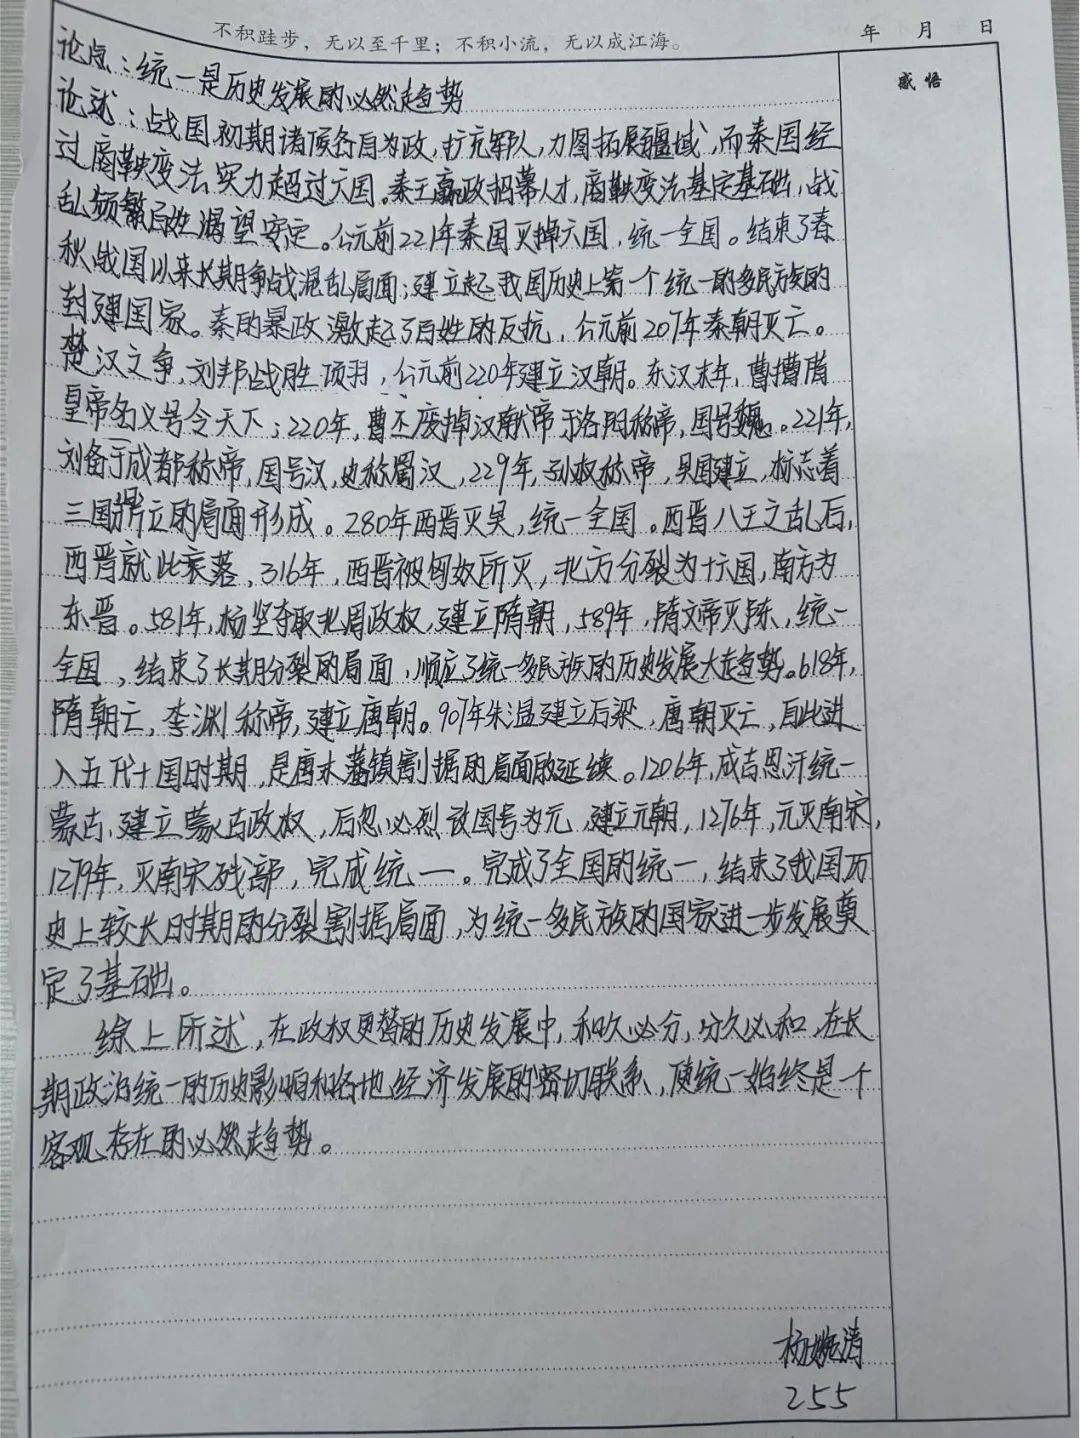 不积跬步，无以至千里；不积小流，无以成江海。
年 月 日
感悟
论点：统一是历史发展的必然趋势
论述：战国初期诸侯各自为政，扩充军队，力图拓展疆域，而秦国经
过商鞅变法，实力超过六国。秦王嬴政招募人才，商鞅变法基定基础，战
乱频繁百姓渴望安定。公元前221年秦国灭掉六国，统一全国。结束了春
秋战国以来长期争战混乱局面；建立起我国历史上第一个统一的多民族的
封建国家。秦的暴政激起了百姓的反抗，公元前207年秦朝灭亡。
楚汉之争，刘邦战胜项羽，公元前220年建立汉朝。东汉末年，曹操借
皇帝名义号令天下；220年，曹丕废掉汉献帝于洛阳称帝，国号魏。221年，
刘备于成都称帝，国号汉，史称蜀汉，229年，孙权称帝，吴国建立，标志着
三国鼎立的局面形成。280年西晋灭吴，统一全国。西晋八王之乱后，
西晋就此衰落，316年，西晋被匈奴所灭，北方分裂为十六国，南方为
东晋。581年，杨坚夺取北周政权，建立隋朝，589年，隋文帝灭陈，统一
全国，结束了长期分裂的局面，顺应了统一多民族的历史发展大趋势。618年，
隋朝亡，李渊称帝，建立唐朝。907年朱温建立后梁，唐朝灭亡，自此进
入五代十国时期，是唐末藩镇割据的局面的延续。1206年，成吉思汗统一
蒙古，建立蒙古政权，后忽必烈改国号为元，建立元朝，1276年，元灭南宋，
1279年，灭南宋残部，完成统一。完成了全国的统一，结束了我国历
史上较长时期的分裂割据局面，为统一多民族的国家进一步发展奠
定了基础。
综上所述，在政权更替的历史发展中，和久必分，分久必和，在长
期政治统一的历史影响和各地经济发展的密切联系，使统一始终是一个
客观存在的必然趋势。
杨婉清
255